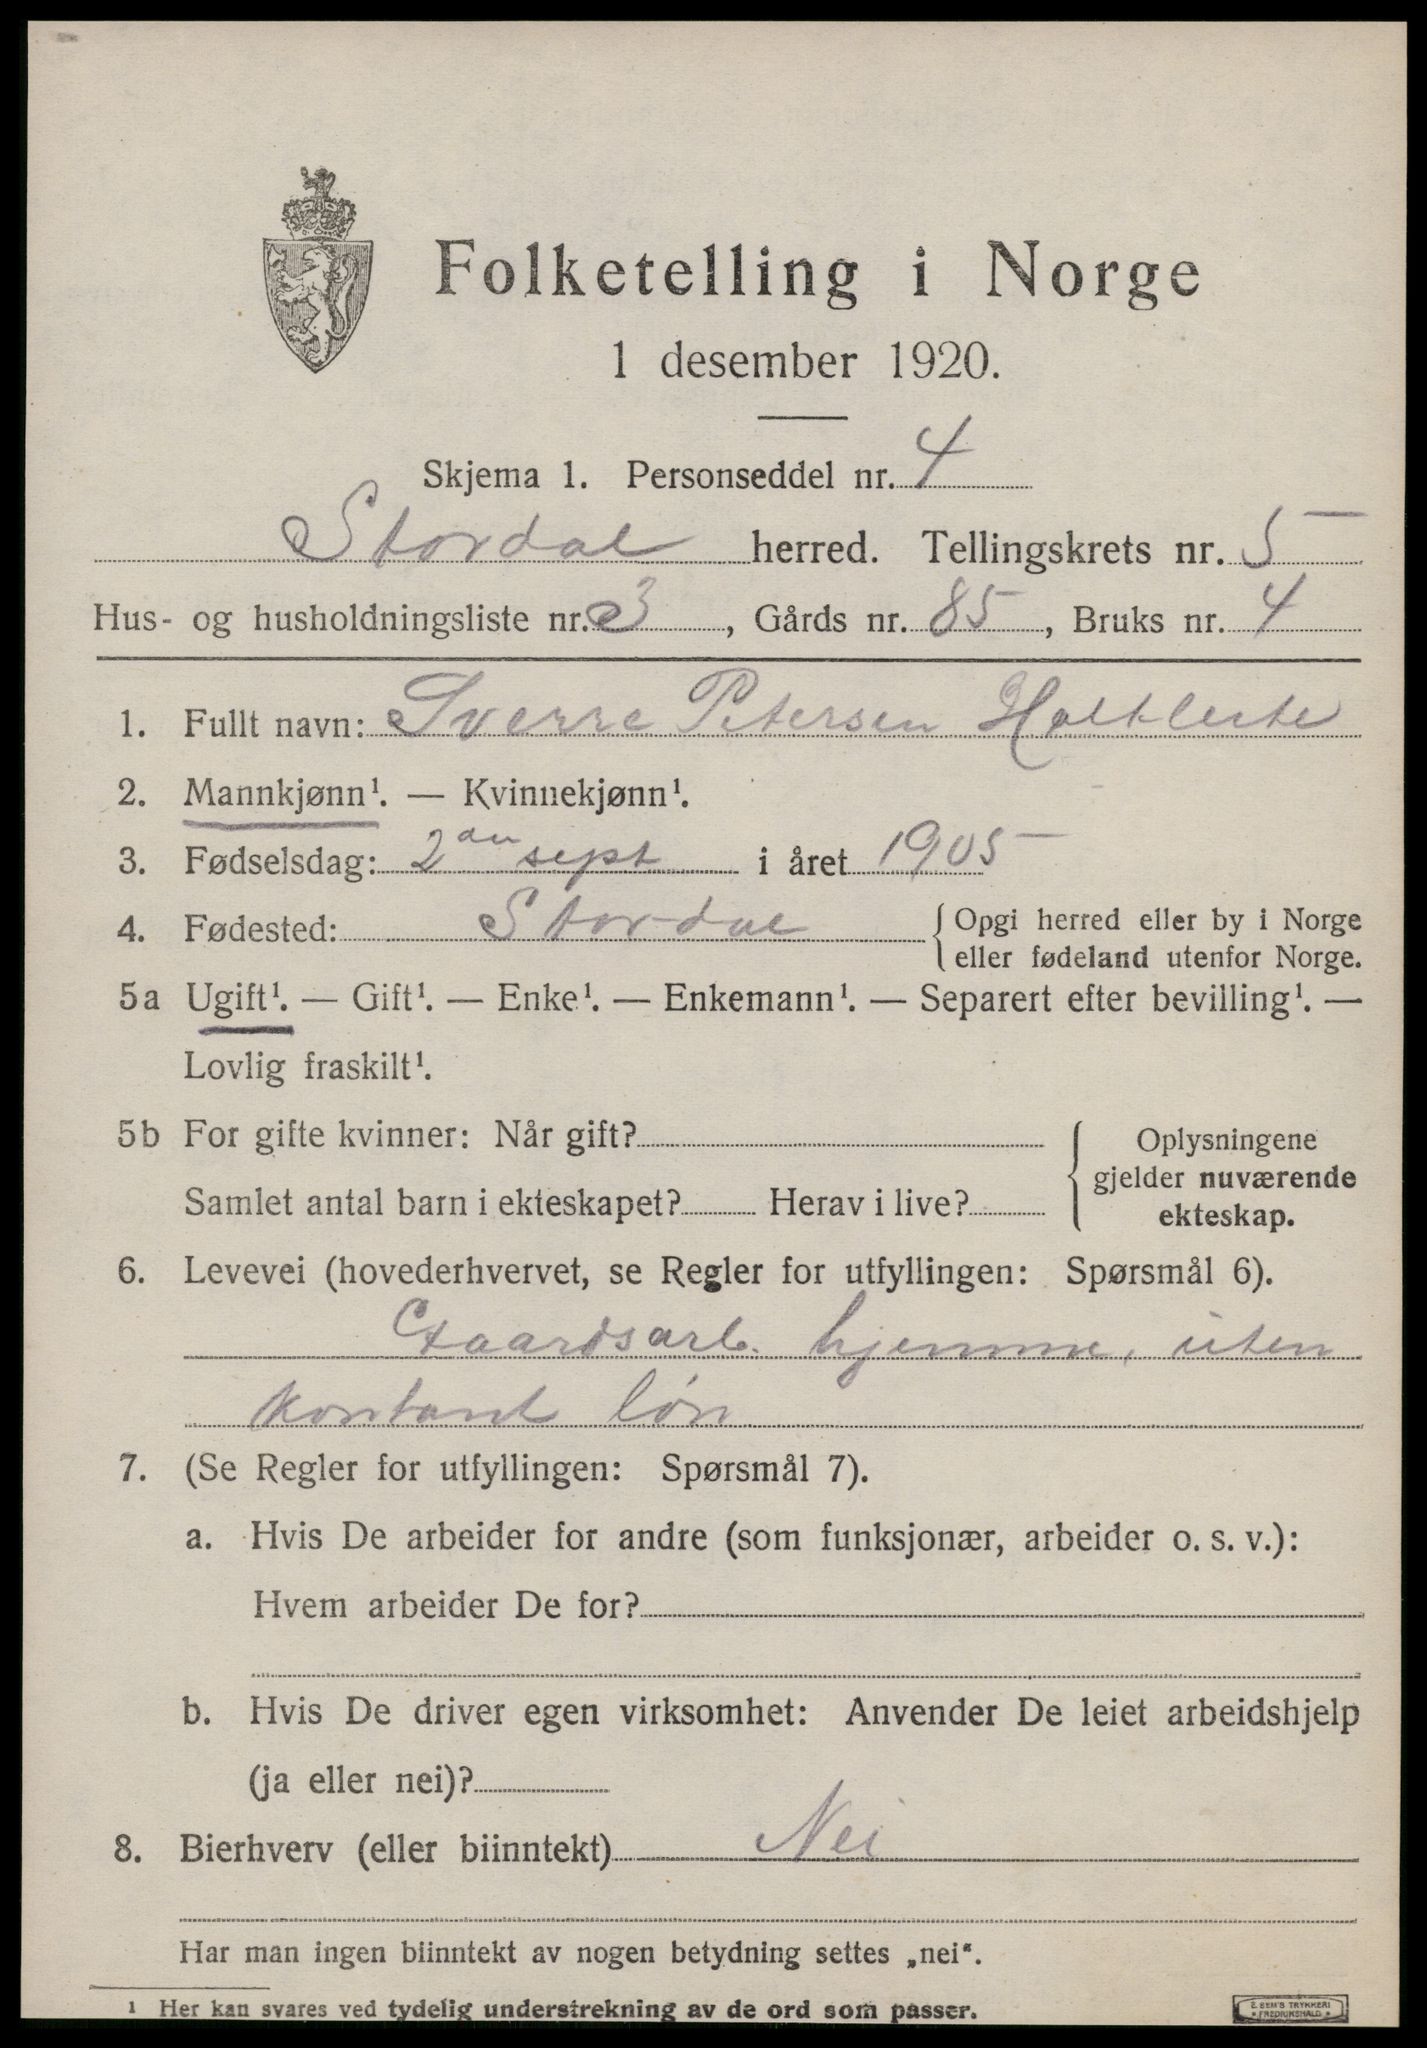 Folketelling i Norge
1 desember 1920.
Skjema 1. Personseddel nr. 4
Stordal herred. Tellingskrets nr. 5
Hus- og husholdningsliste nr. 3, Gårds nr. 85, Bruks nr. 4
1. Fullt navn: Sverre Petersen
2. Mannkjønn¹. — Kvinnekjønn¹.
3. Fødselsdag: 2den sept i året 1905
4. Fødested: Stordal { Opgi herred eller by i Norge
eller fødeland utenfor Norge.
5a Ugift¹. — Gift¹. — Enke¹. — Enkemann¹. — Separert efter bevilling¹. —
Lovlig fraskilt¹.
5b For gifte kvinner: Når gift?
Samlet antal barn i ekteskapet? Herav i live?
Oplysningene
gjelder nuværende
ekteskap.
6. Levevei (hovederhvervet, se Regler for utfyllingen: Spørsmål 6).
Gaardsarb. hjemme, uten
kontant løn
7. (Se Regler for utfyllingen: Spørsmål 7).
a. Hvis De arbeider for andre (som funksjonær, arbeider o. s. v.):
Hvem arbeider De for?
b. Hvis De driver egen virksomhet: Anvender De leiet arbeidshjelp
(ja eller nei)?
8. Bierhverv (eller biinntekt) Nei
Har man ingen biinntekt av nogen betydning settes „nei“.
¹ Her kan svares ved tydelig understrekning av de ord som passer.
E. SEM'S TRYKKERI
FREDRIKSHALD